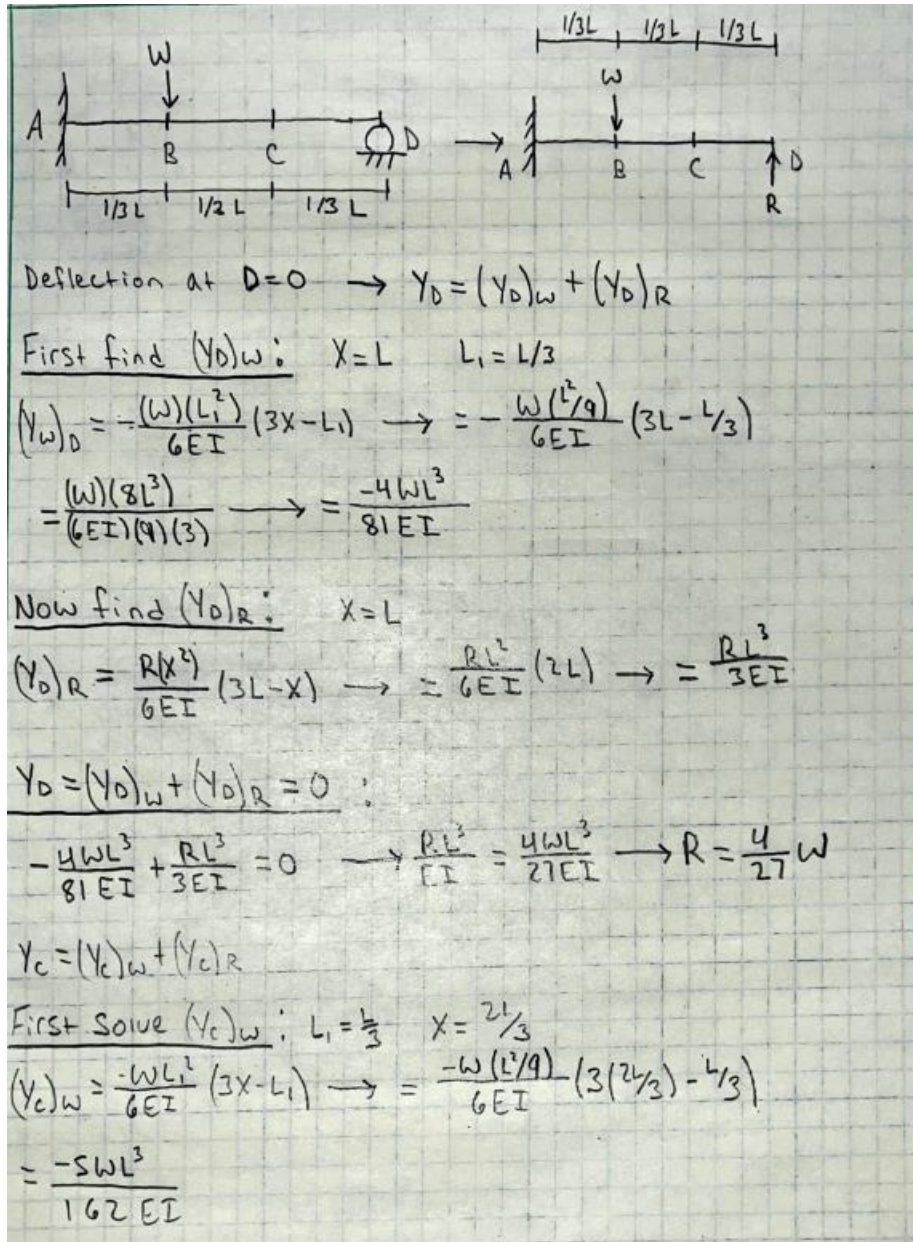 1/3L 1/3L 1/3L
W
W
A B C D → A B C D
R
1/3L 1/2L 1/3L
Deflection at D=0 → Y_D = (Y_D)_W + (Y_D)_R
First find (Y_D)_W: X=L L₁=L/3
(Y_W)_D = -(W)(L₁²)/6EI (3X-L₁) → = -W(L²/9)/6EI (3L-L/3)
= (W)(8L³)/(6EI)(9)(3) → = -4WL³/81EI
Now find (Y_D)_R: X=L
(Y_D)_R = R(X²)/6EI (3L-X) → = RL²/6EI (2L) → = RL³/3EI
Y_D = (Y_D)_W + (Y_D)_R = 0 :
-4WL³/81EI + RL³/3EI = 0 → RL³/EI = 4WL³/27EI → R = 4/27 W
Y_C = (Y_C)_W + (Y_C)_R
First Solve (Y_C)_W: L₁=L/3 X=2L/3
(Y_C)_W = -WL₁²/6EI (3X-L₁) → = -W(L²/9)/6EI (3(2L/3)-L/3)
= -5WL³/162EI